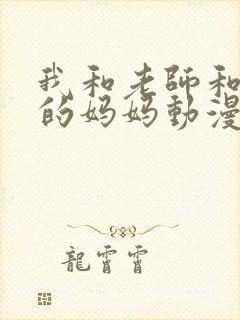 我和老師和
的妈妈動漫
龍霄霄